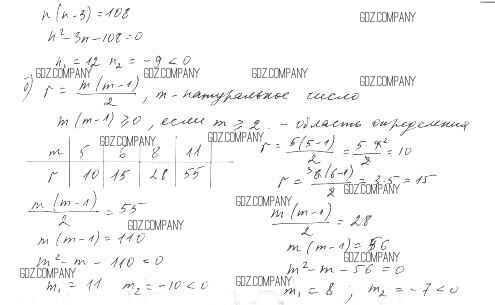 n(n-3)=108
GDZ.COMPANY
n²-3n-108=0
n₁=12 n₂=-9<0
GDZ.COMPANY GDZ.COMPANY GDZ.COMPANY GDZ.COMPANY
б) r = m(m-1)/2, m - натуральное число
m(m-1)≥0, если m≥2. - область определения
GDZ.COMPANY GDZ.COMPANY
m | 5 | 6 | 8 | 11
r | 10 | 15 | 28 | 55
r = 5(5-1)/2 = 5·4²/2 = 10
r = ³6(6-1)/2 = 3·5=15
GDZ.COMPANY
m(m-1)/2 = 55
GDZ.COMPANY
m(m-1)=110
m²-m-110=0
GDZ.COMPANY
m₁=11 m₂=-10<0
GDZ.COMPANY
m(m-1)/2 = 28
m(m-1)=56
GDZ.COMPANY
m²-m-56=0
GDZ.COMPANY
m₁=8; m₂=-7<0